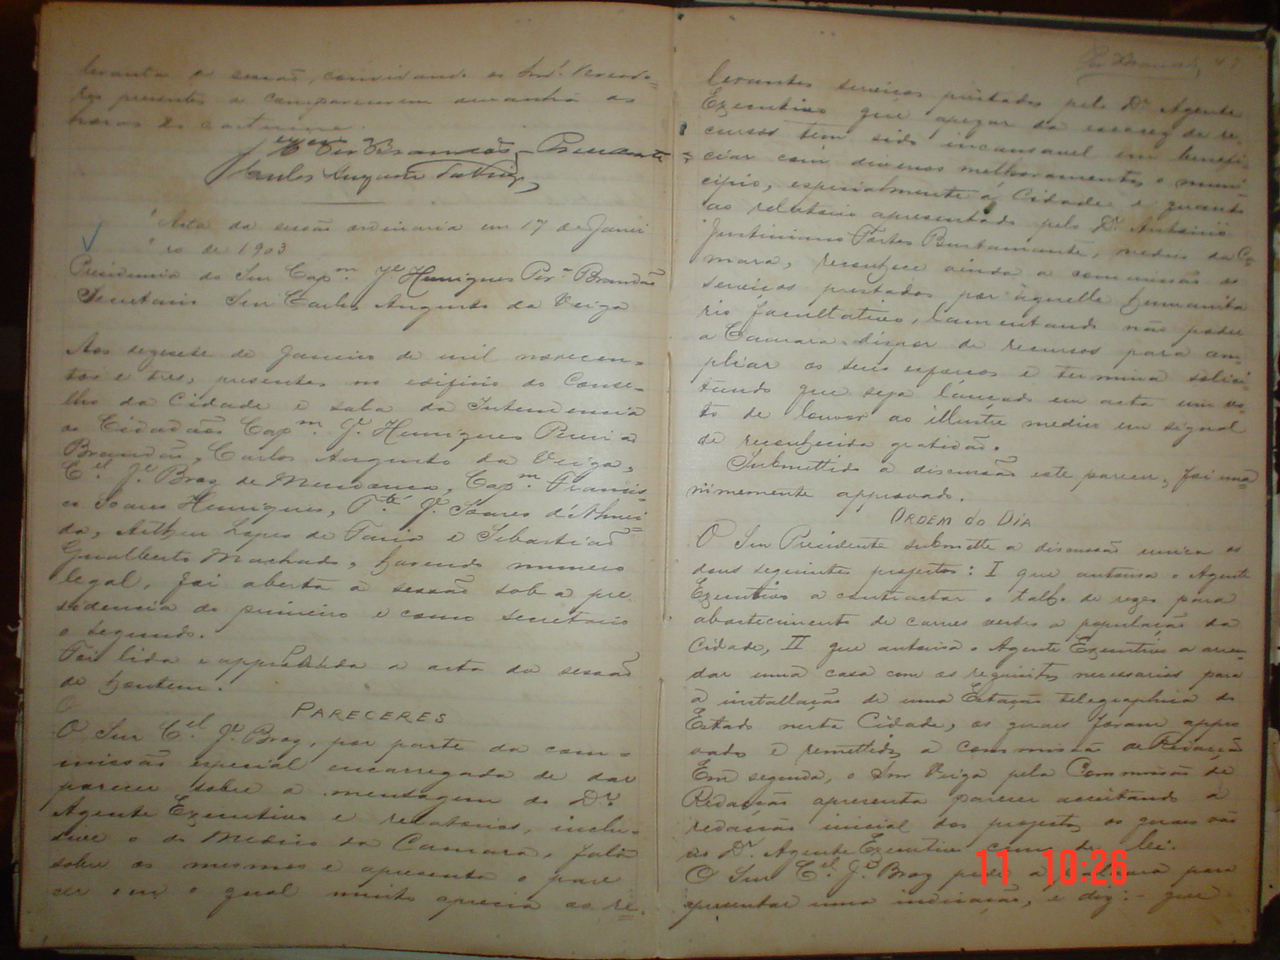 levanta a sessão, convidando os Snrs. Vereado-
res presentes a comparecerem amanhã as
horas do costume.
Per.ª Brandão, Presidente
Carlos Augusto da Veiga
Acta da sessão ordinaria em 17 de Janei
ro de 1903
Presidencia do Snr Cap.m J.e Henriques Per.ª Brandão
Secretario Snr Carlos Augusto da Veiga
Aos desesete de Janeiro de mil novecen-
tos e tres, presentes no edificio do Conse-
lho da Cidade e sala da Intendencia
os Cidadãos Cap.m J.e Henriques Pereira
Brandão, Carlos Augusto da Veiga,
C.el J.e Braz de Mendonça, Cap.m Francis-
co Soares Henriques, T.te J.e Soares d'Almei-
da, Arthur Lopes de Faria e Sebastião
Gualberto Machado, havendo numero
legal, foi aberta a sessão sob a pre
sidencia do primeiro e como secretario
o segundo.
Foi lida e approvada a acta da sessão
de hontem.
PARECERES
O Snr C.el J.e Braz, por parte da com-
missão especial encarregada de dar
parecer sobre a mensagem do Dr.
Agente Executivo e relatorios, inclu-
sive o do Medico da Camara, falla
sobre os mesmos e apresenta o pare
cer em o qual muito aprecia os re-
47
levantes serviços prestados pelo Dr. Agente
Executivo que apezar da escassez de re-
cursos tem sido incansavel em benefi-
ciar com diversos melhoramentos o muni
cipio, especialmente á Cidade e quanto
ao relatorio apresentado pelo Dr. Antonio
Justiniano Fortes Bustamante, medico da Ca
mara, reconhece ainda a commissão os
serviços prestados por aquelle humanita
rio facultativo, lamentando não poder
a Camara dispor de recursos para am-
pliar os seus esforços e termina solici-
tando que seja lançado em acta um vo-
to de louvor ao illustre medico em signal
de reconhecida gratidão.
Submettido a discussão este parecer, foi una
nimemente approvado.
ORDEM DO DIA
O Snr Presidente submette a discussão unica os
dous seguintes projectos: I que autorisa o Agente
Executivo a contractar o talho de rezes para
abastecimento de carnes verdes a população da
Cidade, II que autorisa o Agente Executivo a arren-
dar uma casa com os requisitos necessarios para
a installação de uma Estação telegraphica do
Estado nesta Cidade, os quaes foram appro
vados e remettidos a commissão de Redacção
Em seguida, o Snr Veiga pela Commissão de
Redacção apresenta parecer acceitando a
redacção inicial dos projectos os quaes vão
ao Dr. Agente Executivo como de lei.
O Snr C.el J.e Braz pede a palavra para
apresentar uma indicação, e diz: - que
11 10:26